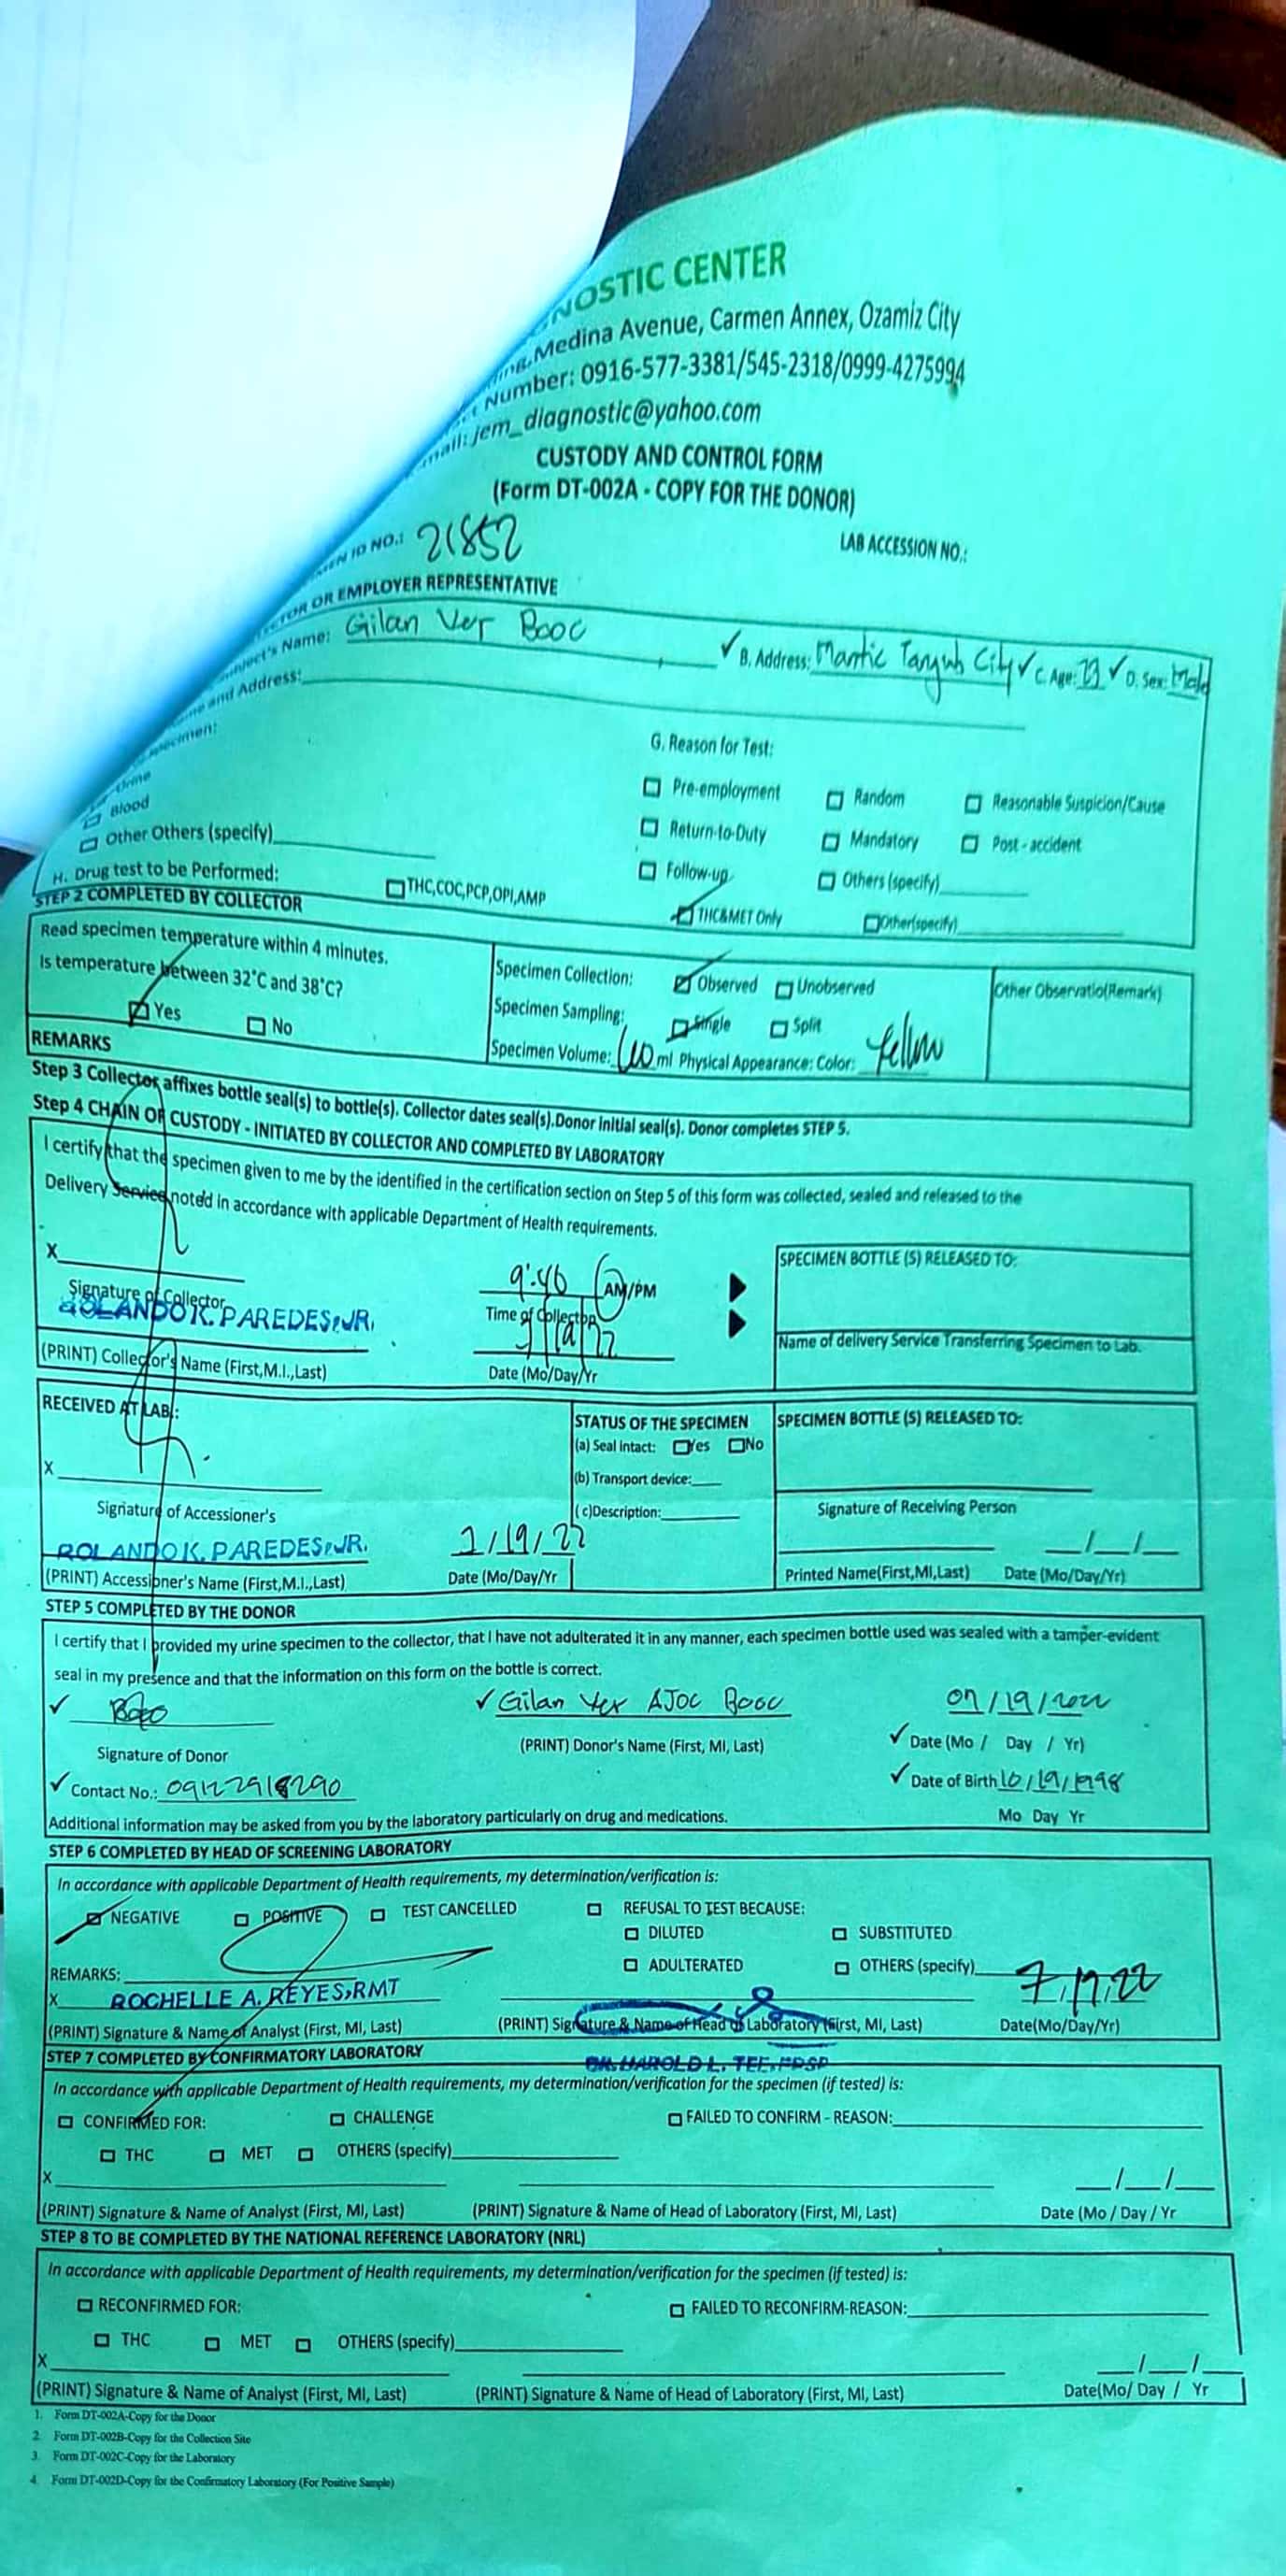 NOSTIC CENTER
Medina Avenue, Carmen Annex, Ozamiz City
Number: 0916-577-3381/545-2318/0999-4275994
mail: jem_diagnostic@yahoo.com
CUSTODY AND CONTROL FORM
(Form DT-002A - COPY FOR THE DONOR)
EN ID NO.: 21852
LAB ACCESSION NO.:
TOR OR EMPLOYER REPRESENTATIVE
ject's Name: Gilan Ver Booc ✓ B. Address: Mantic Tangub City ✓ C. Age: 23 ✓ D. Sex: Male
me and Address:
specimen:
G. Reason for Test:
Urine
Pre-employment Random Reasonable Suspicion/Cause
Blood
Return-to-Duty Mandatory Post - accident
Other Others (specify)
Follow-up Others (specify)
H. Drug test to be Performed: THC,COC,PCP,OPI,AMP THC&MET Only Other(specify)
STEP 2 COMPLETED BY COLLECTOR
Read specimen temperature within 4 minutes.
Is temperature between 32°C and 38°C?
Yes No
Specimen Collection: Observed Unobserved
Specimen Sampling: Single Split
Specimen Volume: 60 ml Physical Appearance: Color: Yellow
Other Observatio(Remark)
REMARKS
Step 3 Collector affixes bottle seal(s) to bottle(s). Collector dates seal(s).Donor initial seal(s). Donor completes STEP 5.
Step 4 CHAIN OF CUSTODY - INITIATED BY COLLECTOR AND COMPLETED BY LABORATORY
I certify that the specimen given to me by the identified in the certification section on Step 5 of this form was collected, sealed and released to the
Delivery Service noted in accordance with applicable Department of Health requirements.
X
9:46 AM/PM
SPECIMEN BOTTLE (S) RELEASED TO:
Signature of Collector
Time of Collection
ROLANDO K. PAREDES, JR.
Name of delivery Service Transferring Specimen to Lab.
(PRINT) Collector's Name (First,M.I.,Last)
Date (Mo/Day/Yr
RECEIVED AT LAB:
STATUS OF THE SPECIMEN
SPECIMEN BOTTLE (S) RELEASED TO:
(a) Seal Intact: Yes No
X
(b) Transport device:
(c)Description:
Signature of Accessioner's
Signature of Receiving Person
ROLANDO K. PAREDES, JR.
(PRINT) Accessioner's Name (First,M.I.,Last)
Date (Mo/Day/Yr
Printed Name(First,MI,Last) Date (Mo/Day/Yr)
STEP 5 COMPLETED BY THE DONOR
I certify that I provided my urine specimen to the collector, that I have not adulterated it in any manner, each specimen bottle used was sealed with a tamper-evident
seal in my presence and that the information on this form on the bottle is correct.
✓ ✓ Gilan Ver AJOC Booc 07/19/2022
Signature of Donor (PRINT) Donor's Name (First, MI, Last) ✓ Date (Mo / Day / Yr)
✓ Contact No.: 09122918290 ✓ Date of Birth 10/19/1998
Mo Day Yr
Additional information may be asked from you by the laboratory particularly on drug and medications.
STEP 6 COMPLETED BY HEAD OF SCREENING LABORATORY
In accordance with applicable Department of Health requirements, my determination/verification is:
NEGATIVE POSITIVE TEST CANCELLED REFUSAL TO TEST BECAUSE:
DILUTED SUBSTITUTED
ADULTERATED OTHERS (specify)
REMARKS:
X ROCHELLE A. REYES, RMT
(PRINT) Signature & Name of Analyst (First, MI, Last) (PRINT) Signature & Name of Head of Laboratory (First, MI, Last) Date(Mo/Day/Yr)
DR. HAROLD L. TEE, FPSP
STEP 7 COMPLETED BY CONFIRMATORY LABORATORY
In accordance with applicable Department of Health requirements, my determination/verification for the specimen (if tested) is:
CONFIRMED FOR: CHALLENGE FAILED TO CONFIRM - REASON:
THC MET OTHERS (specify)
X
(PRINT) Signature & Name of Analyst (First, MI, Last) (PRINT) Signature & Name of Head of Laboratory (First, MI, Last) Date (Mo / Day / Yr
STEP 8 TO BE COMPLETED BY THE NATIONAL REFERENCE LABORATORY (NRL)
In accordance with applicable Department of Health requirements, my determination/verification for the specimen (if tested) is:
RECONFIRMED FOR: FAILED TO RECONFIRM-REASON:
THC MET OTHERS (specify)
X
(PRINT) Signature & Name of Analyst (First, MI, Last) (PRINT) Signature & Name of Head of Laboratory (First, MI, Last) Date(Mo/ Day / Yr
1. Form DT-002A-Copy for the Donor
2. Form DT-002B-Copy for the Collection Site
3. Form DT-002C-Copy for the Laboratory
4. Form DT-002D-Copy for the Confirmatory Laboratory (For Positive Sample)